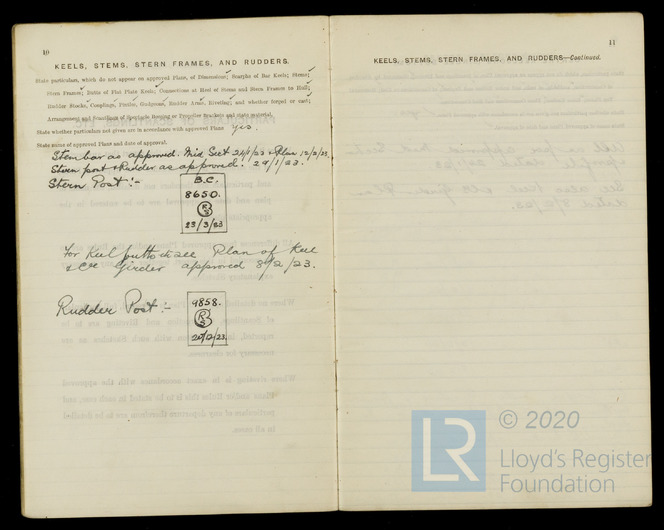 10
KEELS, STEMS, STERN FRAMES, AND RUDDERS.
State particulars, which do not appear on approved Plans, of Dimensions; Scarphs of Bar Keels; Stems;
Stern Frames; Butts of Flat Plate Keels; Connections at Heel of Stems and Stern Frames to Hull;
Rudder Stocks, Couplings, Pintles, Gudgeons, Rudder Arms, Riveting; and whether forged or cast;
Arrangement and Scantlings of Spectacle Bossing or Propeller Brackets and state material.
State whether particulars not given are in accordance with approved Plans Yes.
State name of approved Plans and date of approval.
Stem bar as approved. Mid Sect 24/1/23 & Plan 12/2/23.
Stern post & Rudder as approved. 29/1/23.
Stern Post :-
B.C.
8650.
RS
23/3/23
For Keel butts &c see Plan of Keel
& CL Girder approved 8/2/23.
Rudder Post :-
9858.
RS
20/12/23
11
KEELS, STEMS, STERN FRAMES, AND RUDDERS—Continued.
LR
© 2020
Lloyd's Register
Foundation